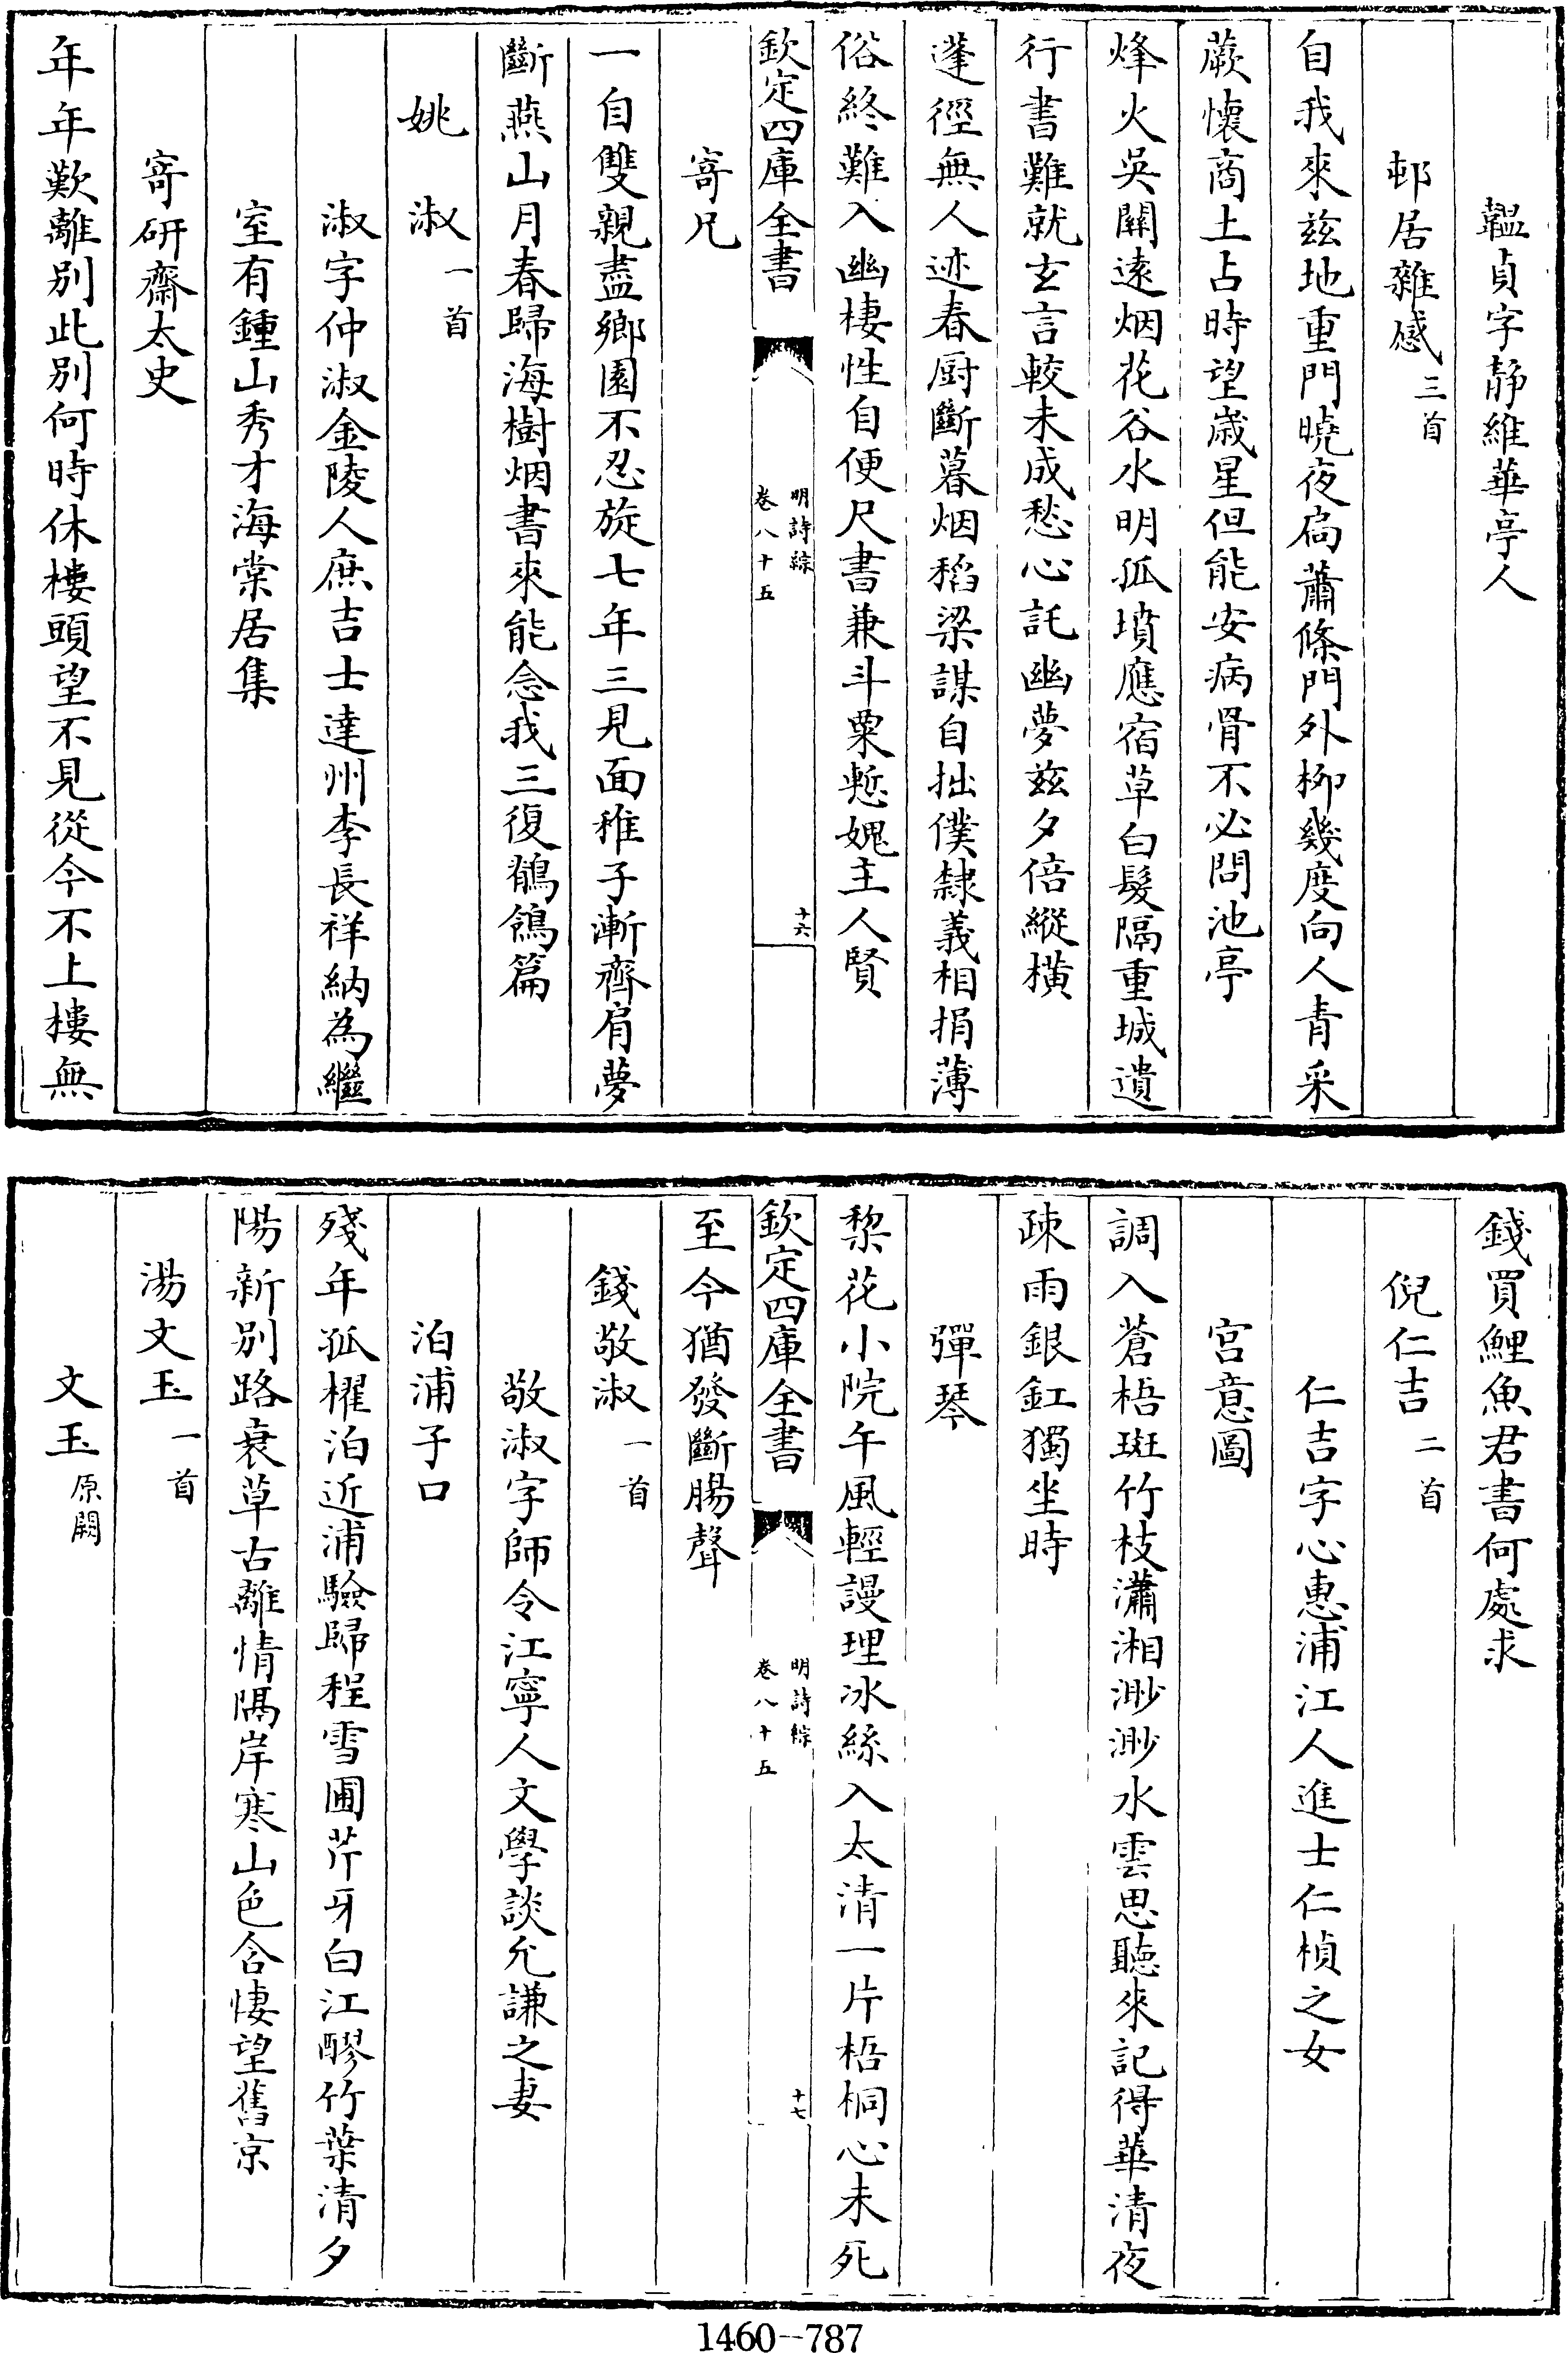 韞貞字靜維華亭人
邨居雜感三首
自我來茲地重門曉夜扃蕭條門外柳幾度向人青采
蕨懷商土占時望歲星但能安病骨不必問池亭
烽火吳關遠烟花谷水明孤墳應宿草白髮隔重城遺
行書難就玄言較未成愁心託幽夢茲夕倍縱橫
蓬徑無人迹春厨斷暮烟稻粱謀自拙僕隸義相捐薄
俗終難入幽棲性自便尺書兼斗粟慙媿主人賢
欽定四庫全書
明詩綜
卷八十五
十六
寄兄
一自雙親盡鄉園不忍旋七年三見面稚子漸齊肩夢
斷燕山月春歸海樹烟書來能念我三復鶺鴒篇
姚淑一首
淑字仲淑金陵人庶吉士達州李長祥納為繼
室有鍾山秀才海棠居集
寄研齋太史
年年歎離別此別何時休樓頭望不見從今不上樓無
錢買鯉魚君書何處求
倪仁吉二首
仁吉字心惠浦江人進士仁楨之女
宮意圖
調入蒼梧斑竹枝瀟湘渺渺水雲思聽來記得華清夜
疎雨銀釭獨坐時
彈琴
梨花小院午風輕謾理冰絲入太清一片梧桐心未死
欽定四庫全書
明詩綜
卷八十五
十七
至今猶發斷腸聲
錢敬淑一首
敬淑字師令江寧人文學談允謙之妻
泊浦子口
殘年孤櫂泊近浦驗歸程雪圃芹牙白江醪竹葉清夕
陽新別路衰草古離情隅岸寒山色含悽望舊京
湯文玉一首
文玉原闕
1460--787